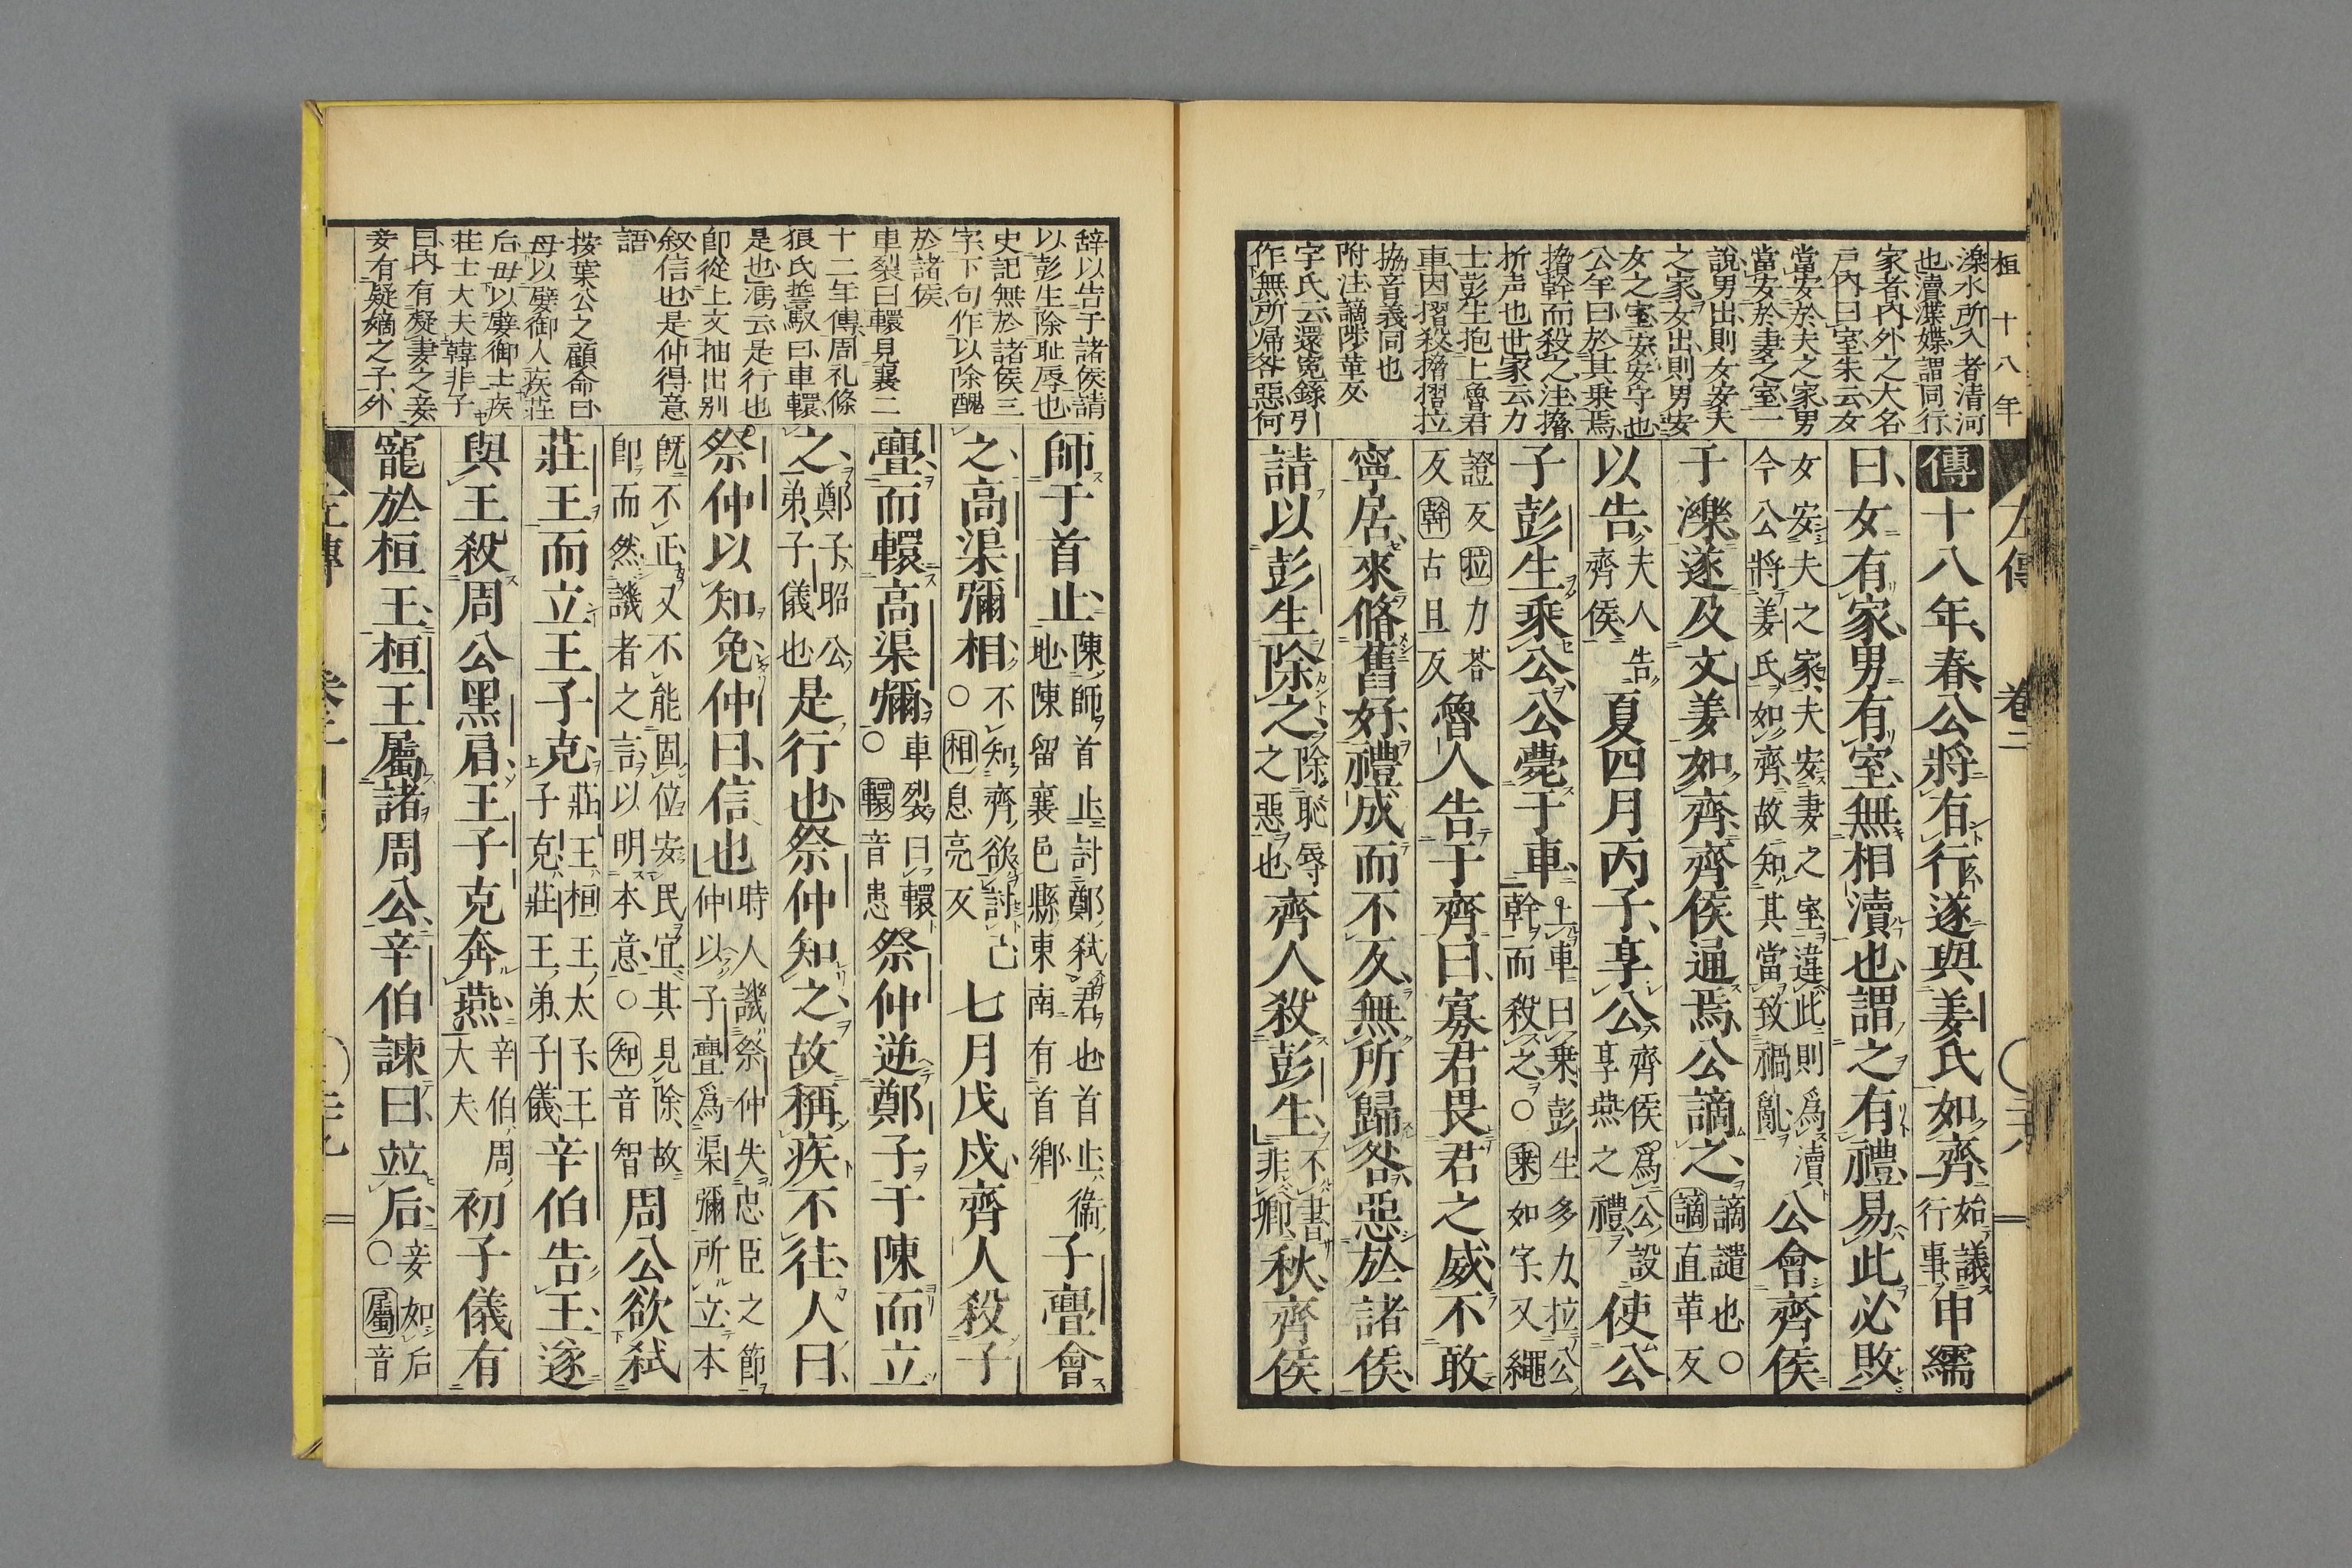 桓十八年
濼水所入者清河
也瀆渫媟謂同行
家者内外之大名
戸内曰室朱云女
當安於夫之家男
當安於妻之室一
說男出則女安夫
之家女出則男安
女之室安安守也
公年曰於其乗焉
搚幹而殺之注搚
折声也世家云力
士彭生抱上魯君
車因摺殺搚摺拉
搚音義同也
附注謫陟革反
字氏云還冤錄引
作無所帰咎惡何
傳十八年春公將有行遂與姜氏如齊始議行事申繻
曰女有家男有室無相瀆也謂之有禮易此必敗
女安夫之家夫安妻之室違此則爲瀆
今公將姜氏如齊故知其當致禍亂公會齊侯
于濼遂及文姜如齊齊侯通焉公謫之謫譴也○謫直革反
以告夫人告齊侯夏四月丙子享公齊侯爲公設享燕之禮使公
子彭生乘公公薨于車上車曰乘彭生多力拉公
幹而殺之○乘如字又繩
證反拉力荅反幹古旦反魯人告于齊曰寡君畏君之威不敢
寧居來脩舊好禮成而不反無所歸咎惡於諸侯
請以彭生除之除恥辱之惡也齊人殺彭生不書非卿秋齊侯
左傳 卷二
辞以告于諸侯請
以彭生除耻辱也
史記無於諸侯三
字下句作以除醜
於諸侯
車裂曰轘見襄二
十二年傳周礼條
狼氏誓馭曰車轘
是也馮云是行也
即從上文抽出別
叙信也是仲得意
語
按葉公之顧命曰
毋以嬖御人疾荘
后毋以嬖御士疾
荘士大夫韓非子
曰内有疑妻之妾
妾有疑嫡之子外
師于首止陳師首止討鄭弑君也首止衞
地陳留襄邑縣東南有首鄉子亹會
之高渠彌相不知齊欲討己○相息亮反七月戊戌齊人殺子
亹而轘高渠彌車裂曰轘○轘音患祭仲逆鄭子于陳而立
之鄭子昭公弟子儀也是行也祭仲知之故稱疾不往人曰
祭仲以知免仲曰信也時人譏祭仲失忠臣之節
仲以子亹爲渠彌所立本
既不正又不能固位安民宜其見除故
即而然譏者之言以明本意○知音智周公欲弑
莊王而立王子克莊王桓王太子王
子克莊王弟子儀辛伯告王遂
與王殺周公黑肩王子克奔燕辛伯周大夫初子儀有
寵於桓王桓王屬諸周公辛伯諫曰竝后妾如后○屬音